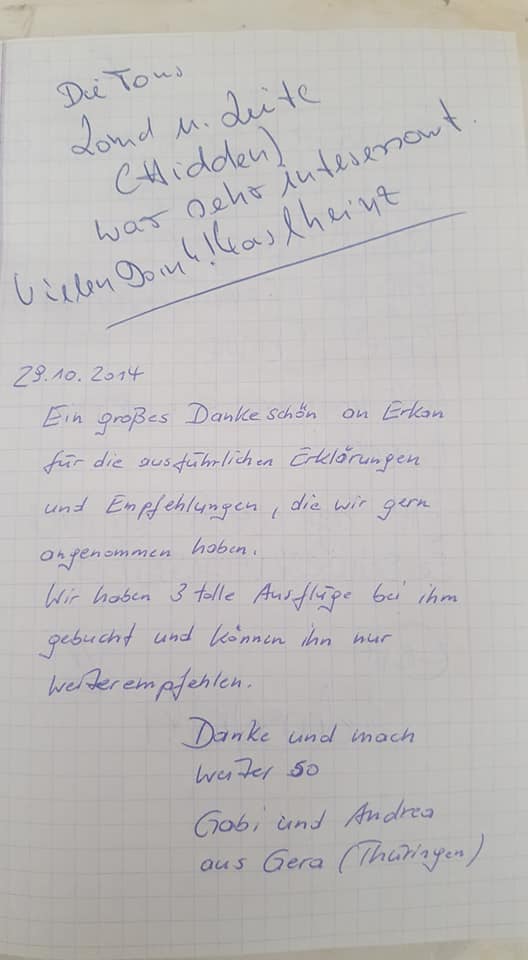 Die Tour
Land u. Leute
(Hidden)
war sehr interessant.
Vielen Dank! Karlheinz
29.10.2014
Ein großes Dankeschön an Erkan
für die ausführlichen Erklärungen
und Empfehlungen, die wir gern
angenommen haben.
Wir haben 3 tolle Ausflüge bei ihm
gebucht und können ihn nur
weiterempfehlen.
Danke und mach
weiter so
Gabi und Andrea
aus Gera (Thüringen)